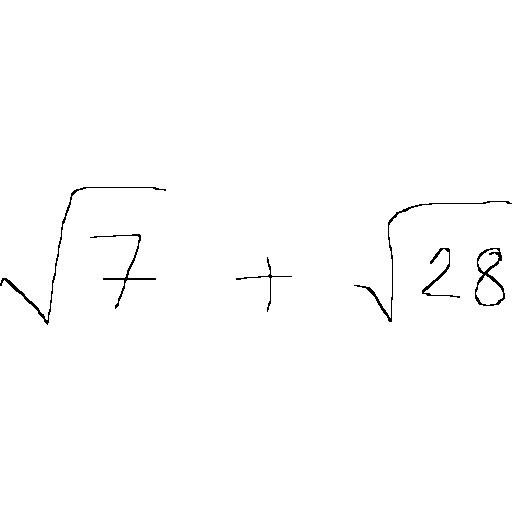 √7 + √28